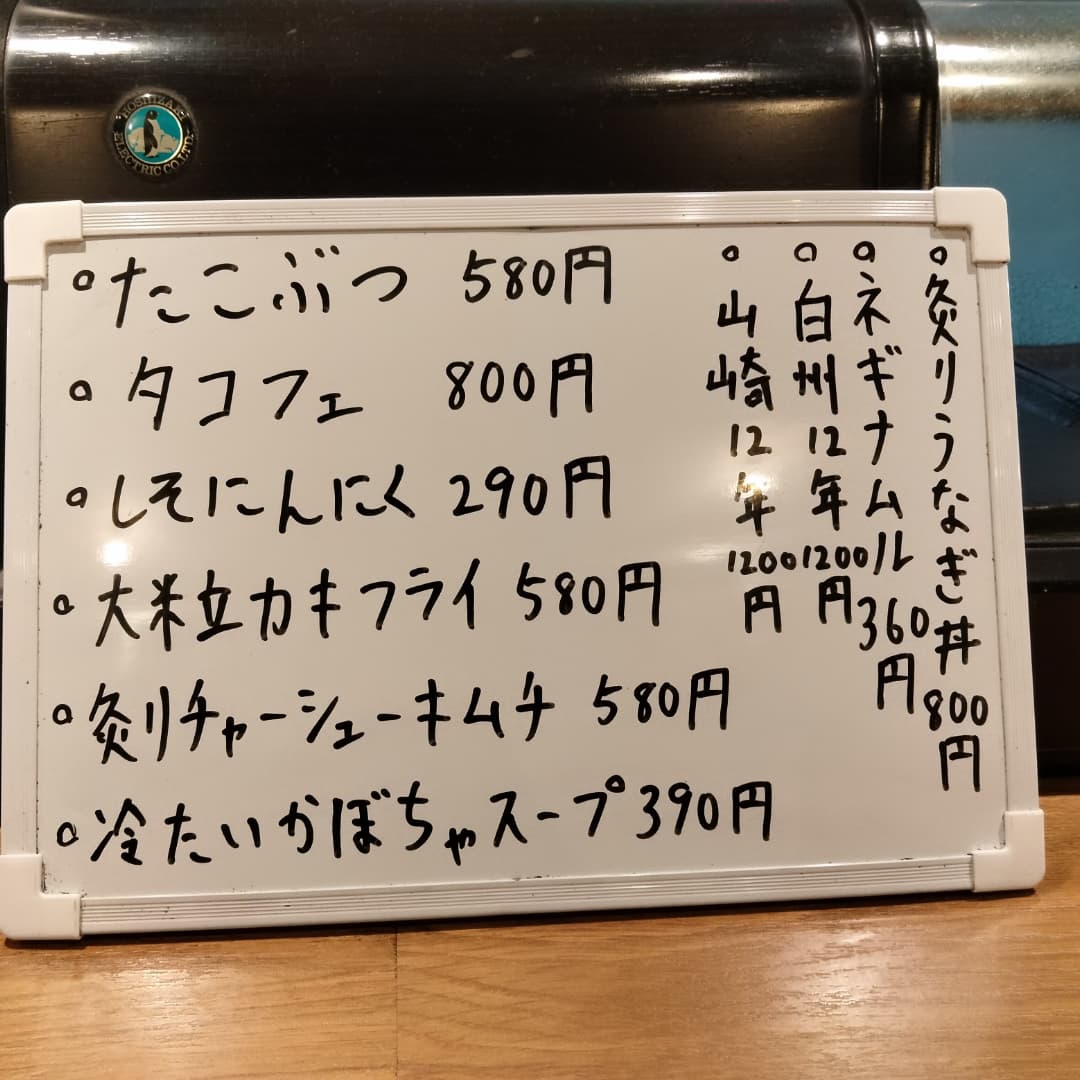 HOSHIZAKI
ELECTRIC CO.LTD.
たこぶつ 580円
タコフェ 800円
しそにんにく 290円
大粒カキフライ 580円
炙りチャーシューキムチ 580円
冷たいかぼちゃスープ 390円
炙りうなぎ丼 800円
ネギナムル 360円
白州12年 1200円
山崎12年 1200円